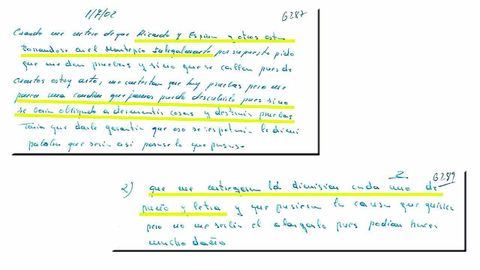 1/7/02
6287
Cuando me entero de que Ricardo y Espinn y otros estan
llevandose en el Monterio Ilegalmente por supuesto pido
que me den pruebas y si no que se callen pues de
cuentos estoy arto, me contestan que hay pruebas pero me
ponen una condicion que jamas puedo descubrirlo pues sino
se verin obligando a desmentir cosas y destruir pruebas
Tenia que darle garantia que eso se respetaria le di mi
palabra que seria asi pasase lo que pasase.
2
6289
2) que me entregaran la dimision cada uno de
puño y letra y que pusieran la causa que quisieran
pero no me serlin el abogado pues podian hacer
mucho daño